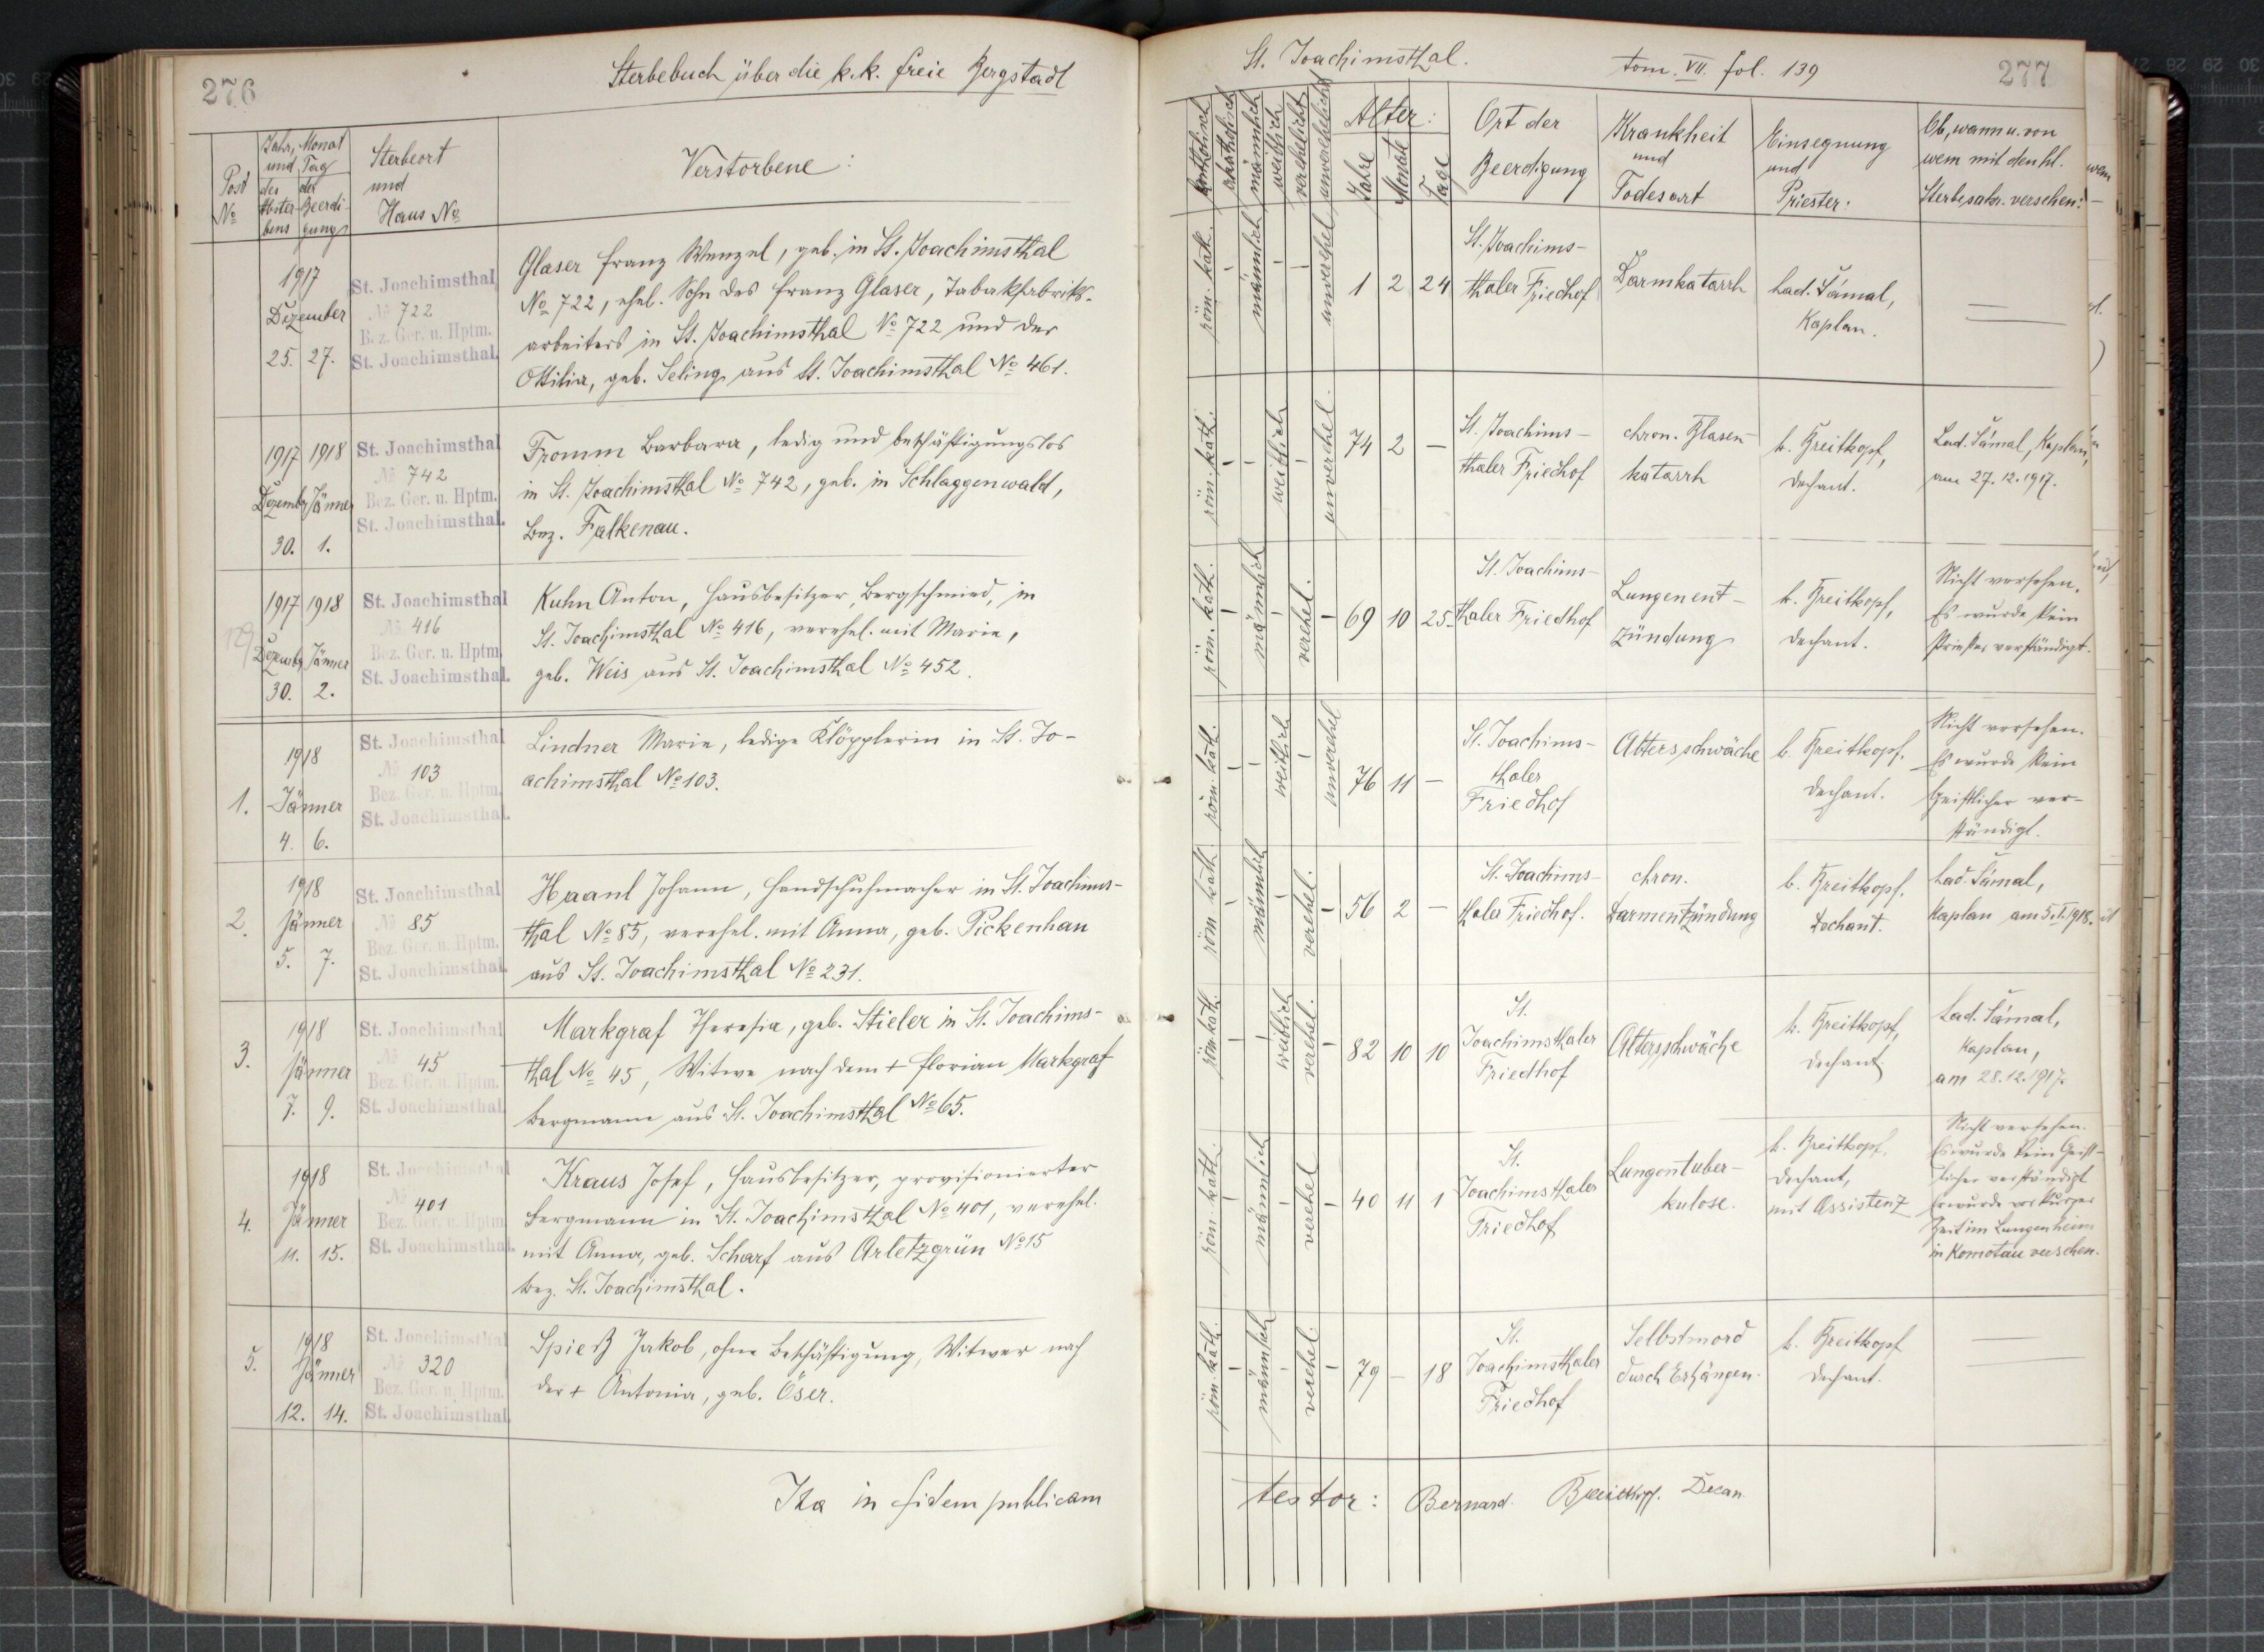 276
Sterbebuch über die k.k. freie Bergstadt
Post
No
Jahr, Monat
und Tag
des der
Abster- Beerdi-
bens gung
Sterbeort
und
Haus No
Verstorbene:
1917
Dezember
25. 27.
St. Joachimsthal
No 722
Bez. Ger. u. Hptm.
St. Joachimsthal.
Glaser Franz Wenzel, geb. in St. Joachimsthal
No 722, ehel. Sohn des Franz Glaser, Tabakfabriks-
arbeiters in St. Joachimsthal No 722 und der
Ottilia, geb. Seling aus St. Joachimsthal No 461.
1917 1918
Dezember Jänner
30. 1.
St. Joachimsthal
No 742
Bez. Ger. u. Hptm.
St. Joachimsthal.
Fromm Barbara, ledig und beschäftigungslos
in St. Joachimsthal No 742, geb. in Schlaggenwald,
Bez. Falkenau.
1917 1918
129
Dezember Jänner
30. 2.
St. Joachimsthal
No 416
Bez. Ger. u. Hptm.
St. Joachimsthal.
Kuhn Anton, Hausbesitzer, Bergschmied, in
St. Joachimsthal No 416, verehel. mit Marie,
geb. Weis aus St. Joachimsthal No 452.
1.
1918
Jänner
4. 6.
St. Joachimsthal
No 103
Bez. Ger. u. Hptm.
St. Joachimsthal.
Lindner Marie, ledige Klöpplerin in St. Jo-
achimsthal No 103.
2.
1918
Jänner
5. 7.
St. Joachimsthal
No 85
Bez. Ger. u. Hptm.
St. Joachimsthal.
Haanl Johann, Handschuhmacher in St. Joachims-
thal No 85, verehel. mit Anna, geb. Pickenhan
aus St. Joachimsthal No 231.
3.
1918
Jänner
7. 9.
St. Joachimsthal
No 45
Bez. Ger. u. Hptm.
St. Joachimsthal.
Markgraf Theresia, geb. Stieler in St. Joachims-
thal No 45, Witwe nach dem + Florian Markgraf
Bergmann aus St. Joachimsthal No 65.
4.
1918
Jänner
11. 15.
St. Joachimsthal
No 401
Bez. Ger. u. Hptm.
St. Joachimsthal.
Kraus Josef, Hausbesitzer, provisionierter
Bergmann in St. Joachimsthal No 401, verehel.
mit Anna, geb. Scharf aus Arletzgrün No 15
Bez. St. Joachimsthal.
5.
1918
Jänner
12. 14.
St. Joachimsthal
No 320
Bez. Ger. u. Hptm.
St. Joachimsthal.
Spieß Jakob, ohne Beschäftigung, Witwer nach
der + Antonia, geb. Öser.
Ita in fidem publicam
St. Joachimsthal.
tom. VII. fol. 139
277
katholisch
akatholisch
männlich
weiblich
verehelicht
unverehelicht
Alter:
Jahre
Monate
Tage
Ort der
Beerdigung
Krankheit
und
Todesart
Einsegnung
und
Priester:
Ob, wann u. von
wem mit den hl.
Sterbesakr. versehen:
röm. kath. - männlich - - unverehel
1 2 24
St. Joachims-
thaler Friedhof
Darmkatarrh
Lad. Šámal,
Kaplan.
röm. kath. - - weiblich - unverehel.
74 2 -
St. Joachims-
thaler Friedhof
chron. Blasen-
katarrh
b. Breitkopf,
Dechant.
Lad. Šámal, Kaplan,
am 27.12.1917.
röm. kath. - männlich - verehel. -
69 10 25
St. Joachims-
thaler Friedhof
Lungenent-
zündung
b. Breitkopf,
Dechant.
Nicht versehen.
Es wurde kein
Priester verständigt.
röm. kath. - - weiblich - unverehel
76 11 -
St. Joachims-
thaler
Friedhof
Altersschwäche
b. Breitkopf.
Dechant.
Nicht versehen.
Es wurde kein
Geistlicher ver-
ständigt.
röm kath. - männlich - verehel. -
56 2 -
St. Joachims-
thaler Friedhof.
chron.
Darmentzündung
b. Breitkopf.
Dechant.
Lad. Šámal,
Kaplan am 5.I.1918.
röm. kath. - - weiblich verehel. -
82 10 10
St.
Joachimsthaler
Friedhof
Altersschwäche
b. Breitkopf,
Dechant
Lad. Šámal,
Kaplan,
am 28.12.1917.
röm. kath. - männlich - verehel -
40 11 1
St.
Joachimsthaler
Friedhof
Lungentuber-
kulose.
b. Breitkopf,
Dechant,
mit Assistenz
Nicht versehen.
Es wurde kein Geist-
licher verständigt
Er wurde vor kurzer
Zeit im Lungenheim
in Komotau versehen.
röm. kath. - männlich - verehel. -
79 - 18
St.
Joachimsthaler
Friedhof
Selbstmord
durch Erhängen.
b. Breitkopf
Dechant.
testor: Bernard. Breitkopf. Decan.